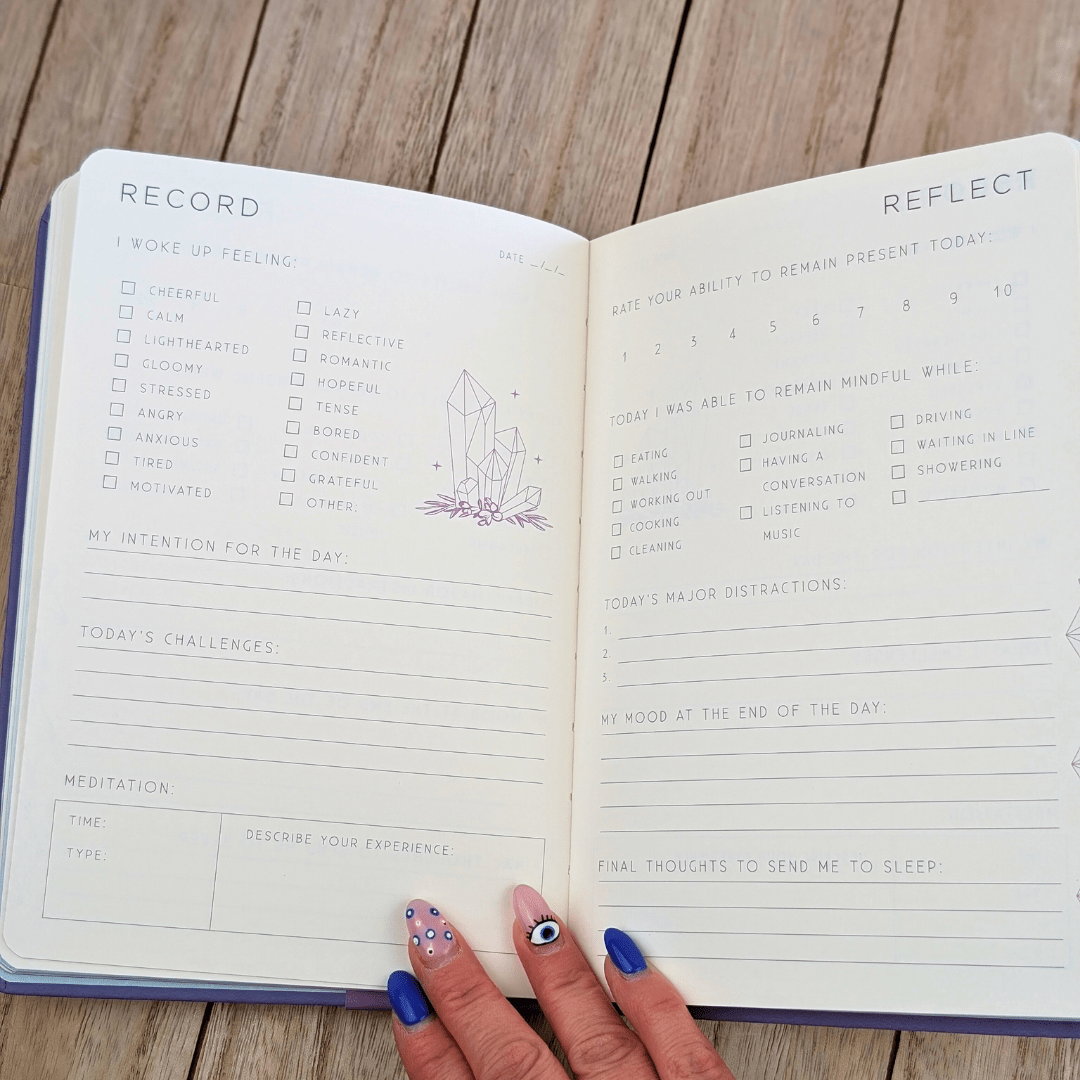 RECORD
I WOKE UP FEELING:
DATE _/_/_
CHEERFUL
CALM
LIGHTHEARTED
GLOOMY
STRESSED
ANGRY
ANXIOUS
TIRED
MOTIVATED
LAZY
REFLECTIVE
ROMANTIC
HOPEFUL
TENSE
BORED
CONFIDENT
GRATEFUL
OTHER:
MY INTENTION FOR THE DAY:
TODAY'S CHALLENGES:
MEDITATION:
TIME:
TYPE:
DESCRIBE YOUR EXPERIENCE:
REFLECT
RATE YOUR ABILITY TO REMAIN PRESENT TODAY:
1 2 3 4 5 6 7 8 9 10
TODAY I WAS ABLE TO REMAIN MINDFUL WHILE:
EATING
WALKING
WORKING OUT
COOKING
CLEANING
JOURNALING
HAVING A
CONVERSATION
LISTENING TO
MUSIC
DRIVING
WAITING IN LINE
SHOWERING
TODAY'S MAJOR DISTRACTIONS:
1.
2.
3.
MY MOOD AT THE END OF THE DAY:
FINAL THOUGHTS TO SEND ME TO SLEEP: